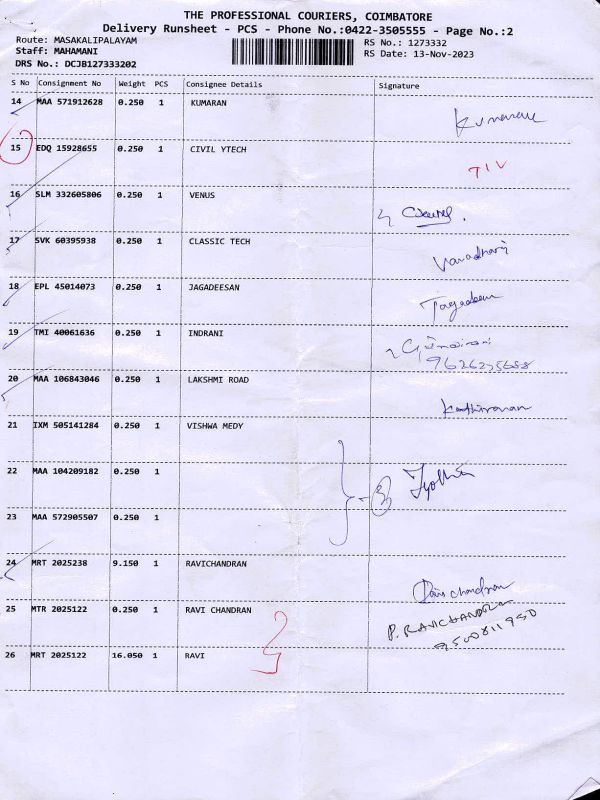 THE PROFESSIONAL COURIERS, COIMBATORE
Delivery Runsheet - PCS - Phone No.:0422-3505555 - Page No.:2
Route: MASAKALIPALAYAM
Staff: MAHAMANI
DRS No.: DCJB127333202
RS No.: 1273332
RS Date: 13-Nov-2023
S No Consignment No Weight PCS Consignee Details Signature
14 MAA 571912628 0.250 1 KUMARAN Kumaran
15 EDQ 15928655 0.250 1 CIVIL YTECH
16 SLM 332605806 0.250 1 VENUS
17 SVK 60395938 0.250 1 CLASSIC TECH Varadharaj
18 EPL 45014073 0.250 1 JAGADEESAN Jagadeesan
19 TMI 40061636 0.250 1 INDRANI
9626275688
20 MAA 106843046 0.250 1 LAKSHMI ROAD Kathiravan
21 IXM 505141284 0.250 1 VISHWA MEDY
22 MAA 104209182 0.250 1 3 Jyothi
23 MAA 572905507 0.250 1
24 MRT 2025238 9.150 1 RAVICHANDRAN Ravichandran
25 MTR 2025122 0.250 1 RAVI CHANDRAN P. RAVICHANDRAN
9500811950
26 MRT 2025122 16.050 1 RAVI